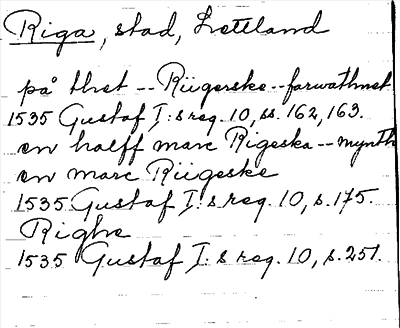 Riga, stad, Lettland
på thet -- Rügerske -- farwathnet
1535 Gustaf I:s reg. 10, ss. 162, 163.
en halff marc Rigeska -- mynth
en marc Rügeske
1535 Gustaf I:s reg. 10, s. 175.
Righe
1535 Gustaf I:s reg. 10, s. 251.